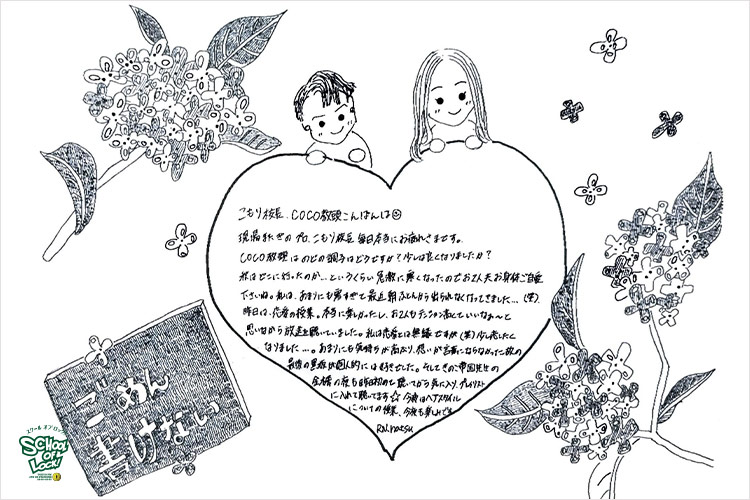 こもり校長、COCO教頭こんばんは☺
現場狂いのプロ、こもり校長毎日本当にお疲れさまです。
COCO教頭はのどの調子はどうですか?少しは良くなりましたか?
秋はどこに行ったのか…というくらい急激に寒くなったのでお2人共お身体ご自愛
下さいね。私は、あまりにも寒すぎて最近朝ふとんから出られなくなってきました…(笑)
昨日は、恋愛の授業。本当に楽しかったし、お2人も
思いながら放送を聴いていました。私は恋愛とは無縁ですが(笑)少し恋したく
なりました…。あまりにも気持ちが高たり、想いが言葉にならなかった故の
最後の黒板が個人的には好きでした。そしてきのこ帝国先生の
金木犀の夜も昨日初めて聴いてから気に入り、プレイリスト
に入れて聴いてます☆今夜はヘアスタイル
についての授業、今夜も楽しみです
RN.
ごめん
書けないっ
スクール オブ ロック
SCHOOL
OF
LOCK!